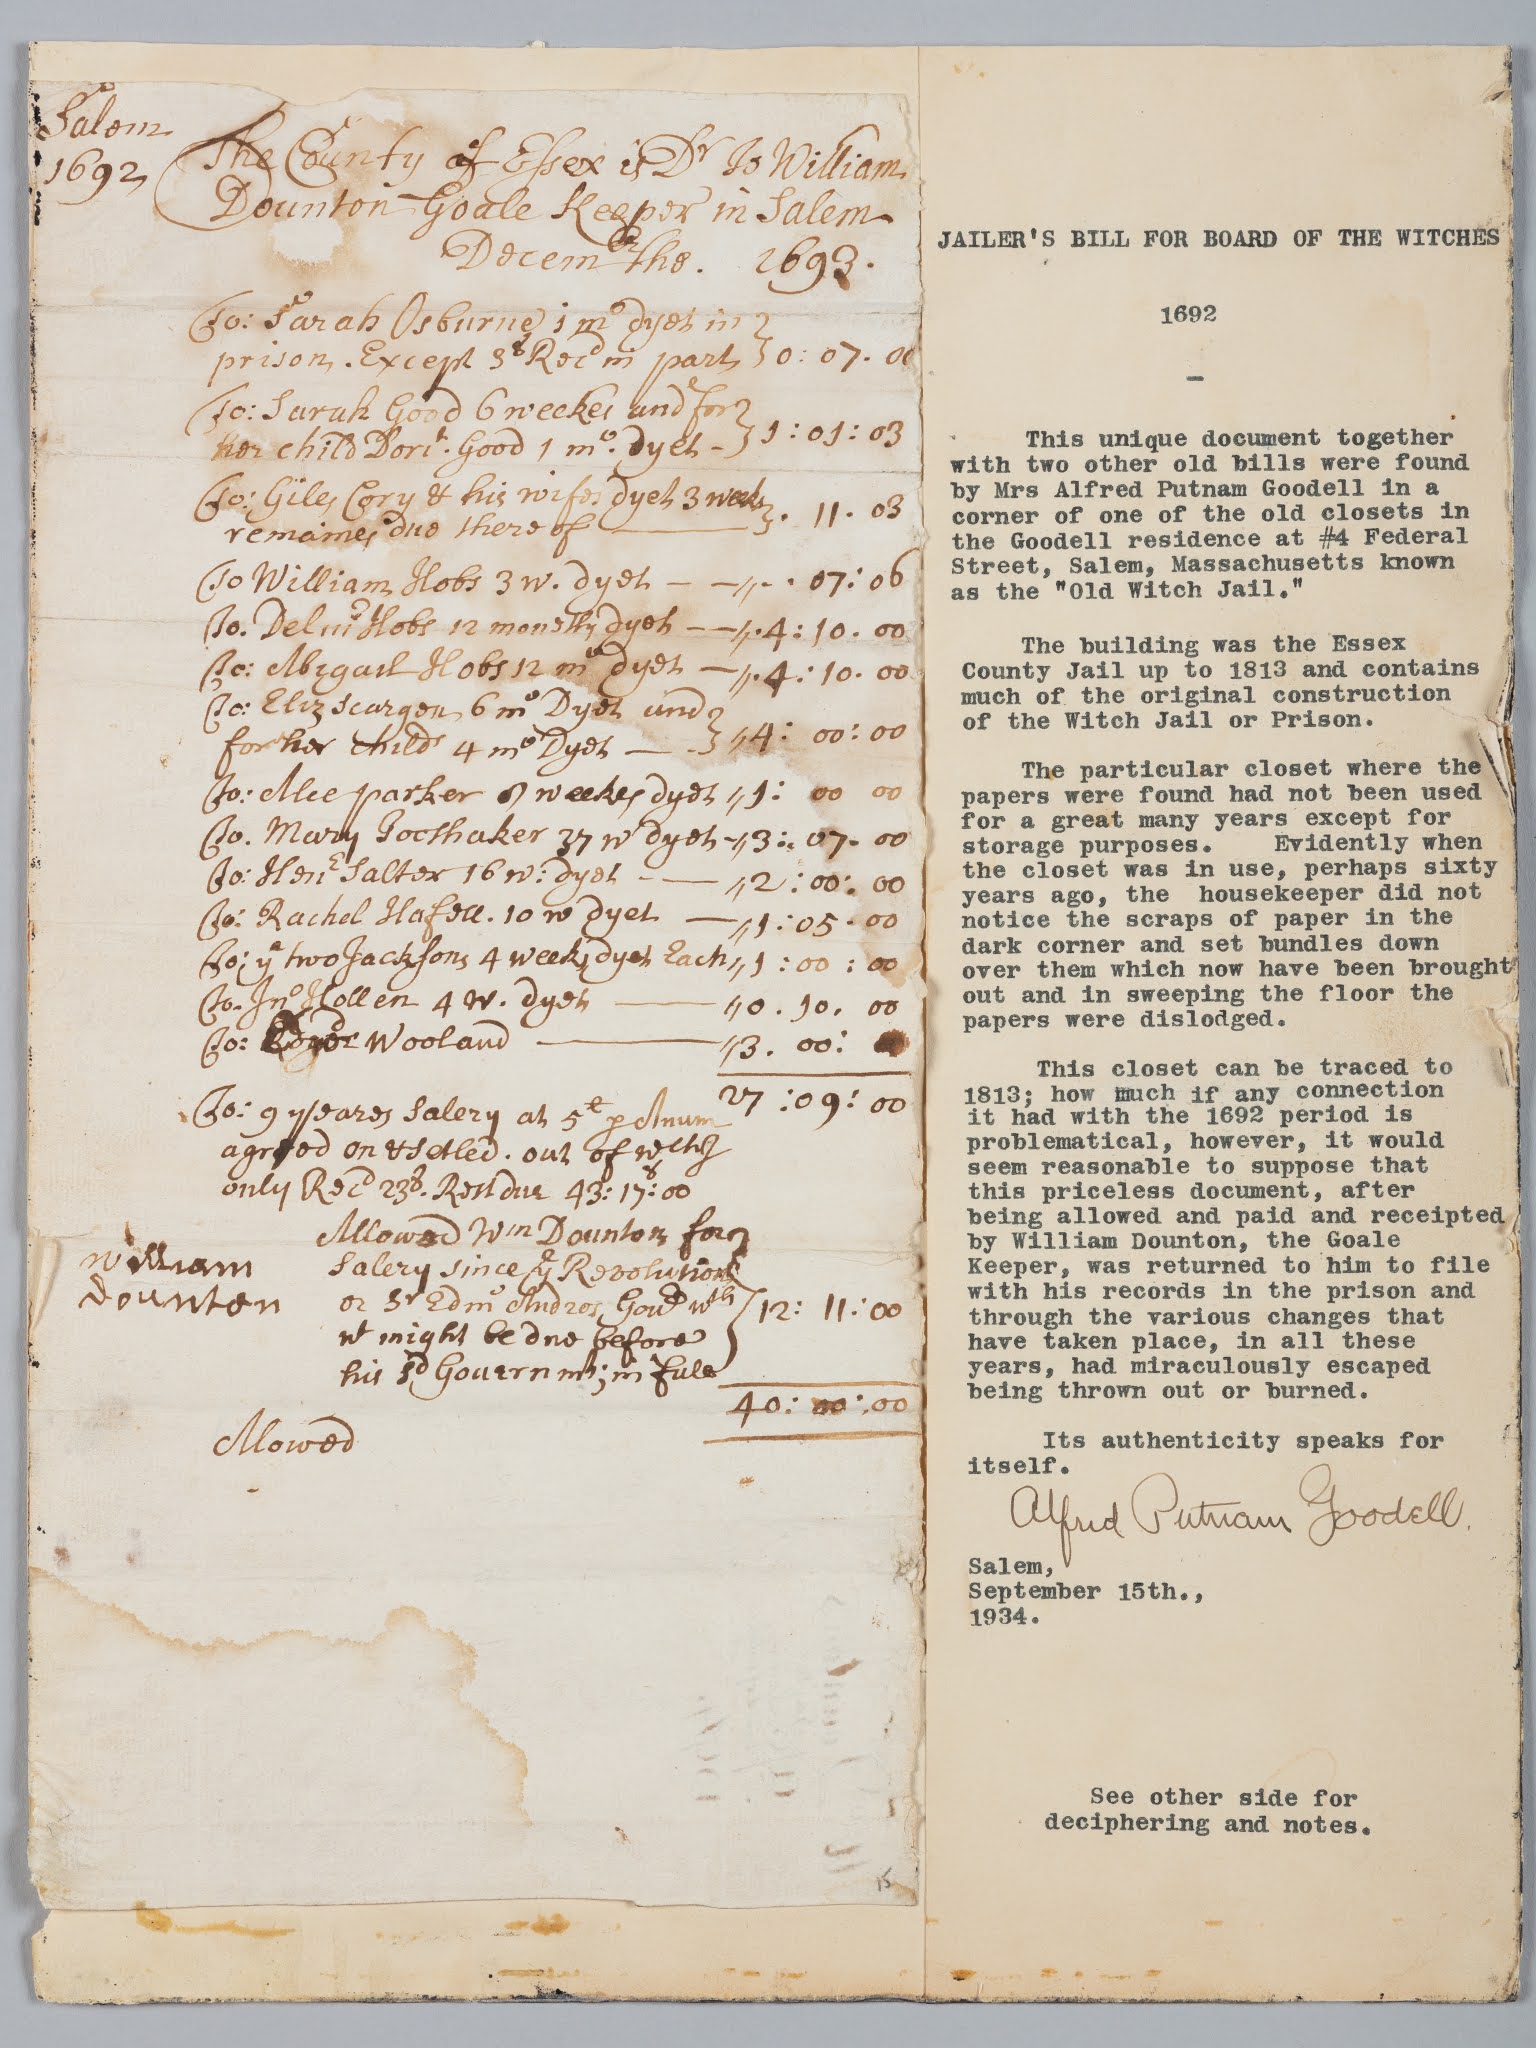 Salem
1692
The County of Essex is Dr To William
Dounton Goale Keeper in Salem
Decembr the. 1693.
To: Sarah Osburne 1 mo dyet in
prison. Except 3s Recd in part 0: 07. 00
To: Sarah Good 6 weekes and for
her child Dort. Good 1 mo. dyet - 1: 01: 03
To: Giles Cory & his wife dyet 3 weeks
remaines due there of . 11. 03
To William Hobs 3 w. dyet — 07: 06
To. Delive Hobs 12 months dyet — 4: 10. 00
To: Abigail Hobs 12 mo dyet — 4: 10. 00
To: Eliz Scargen 6 mo Dyet and
for her child 4 mo Dyet — 4: 00: 00
To: Alce parker weekes dyet 1: 00 00
To. Mary Toothaker 37 w dyet 3: 07. 00
To: Hen Salter 16 w: dyet — 2: 00: 00
To: Rachel Hafell. 10 w dyet — 1: 05. 00
To: ye two Jacksons 4 weeks dyet Each 1: 00: 00
To. Jno Hollen 4 w. dyet — 0. 10. 00
To: Wooland — 3. 00:
27: 09: 00
To: 9 yeares Salery at 5 p Anum
agreed on & setled. out of wch
only Recd 23s. Rest due 43: 17: 00
Allowed Wm Dounton for
Salery since ye Revolution
or Sr Edm Andros Govr wth
wt might be due before
his sd Governmt; in full 12: 11: 00
40: 00: 00
William
Dounton
Allowed
15
JAILER'S BILL FOR BOARD OF THE WITCHES
1692
-
This unique document together
with two other old bills were found
by Mrs Alfred Putnam Goodell in a
corner of one of the old closets in
the Goodell residence at #4 Federal
Street, Salem, Massachusetts known
as the "Old Witch Jail."
The building was the Essex
County Jail up to 1813 and contains
much of the original construction
of the Witch Jail or Prison.
The particular closet where the
papers were found had not been used
for a great many years except for
storage purposes. Evidently when
the closet was in use, perhaps sixty
years ago, the housekeeper did not
notice the scraps of paper in the
dark corner and set bundles down
over them which now have been brought
out and in sweeping the floor the
papers were dislodged.
This closet can be traced to
1813; how much if any connection
it had with the 1692 period is
problematical, however, it would
seem reasonable to suppose that
this priceless document, after
being allowed and paid and receipted
by William Dounton, the Goale
Keeper, was returned to him to file
with his records in the prison and
through the various changes that
have taken place, in all these
years, had miraculously escaped
being thrown out or burned.
Its authenticity speaks for
itself.
Alfred Putnam Goodell.
Salem,
September 15th.,
1934.
See other side for
deciphering and notes.